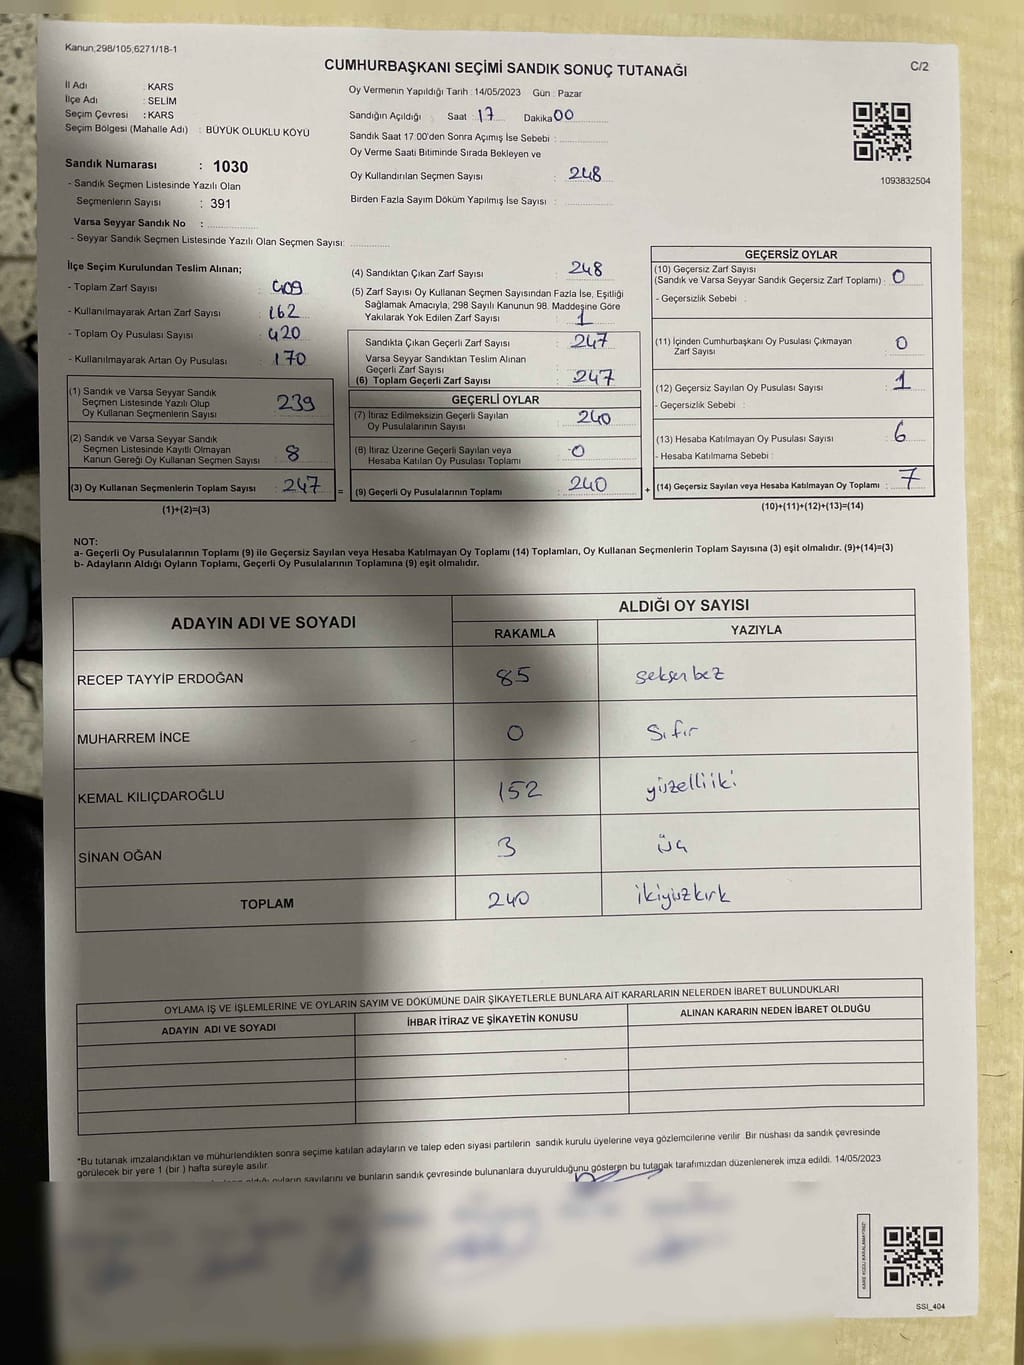 Kanun,298/105,6271/18-1
CUMHURBAŞKANI SEÇİMİ SANDIK SONUÇ TUTANAĞI
C/2
İl Adı : KARS
İlçe Adı : SELİM
Seçim Çevresi : KARS
Seçim Bölgesi (Mahalle Adı) : BÜYÜK OLUKLU KÖYÜ
Sandık Numarası : 1030
- Sandık Seçmen Listesinde Yazılı Olan
Seçmenlerin Sayısı : 391
Varsa Seyyar Sandık No :
- Seyyar Sandık Seçmen Listesinde Yazılı Olan Seçmen Sayısı:
Oy Vermenin Yapıldığı Tarih : 14/05/2023 Gün : Pazar
Sandığın Açıldığı Saat : 17 Dakika 00
Sandık Saat 17:00'den Sonra Açımış İse Sebebi :
Oy Verme Saati Bitiminde Sırada Bekleyen ve
Oy Kullandırılan Seçmen Sayısı : 248
Birden Fazla Sayım Döküm Yapılmış İse Sayısı :
1093832504
İlçe Seçim Kurulundan Teslim Alınan;
- Toplam Zarf Sayısı : 409
- Kullanılmayarak Artan Zarf Sayısı : 162
- Toplam Oy Pusulası Sayısı : 420
- Kullanılmayarak Artan Oy Pusulası : 170
(1) Sandık ve Varsa Seyyar Sandık
Seçmen Listesinde Yazılı Olup
Oy Kullanan Seçmenlerin Sayısı : 239
(2) Sandık ve Varsa Seyyar Sandık
Seçmen Listesinde Kayıtlı Olmayan
Kanun Gereği Oy Kullanan Seçmen Sayısı : 8
(3) Oy Kullanan Seçmenlerin Toplam Sayısı : 247 =
(1)+(2)=(3)
(4) Sandıktan Çıkan Zarf Sayısı : 248
(5) Zarf Sayısı Oy Kullanan Seçmen Sayısından Fazla İse, Eşitliği
Sağlamak Amacıyla, 298 Sayılı Kanunun 98. Maddesine Göre
Yakılarak Yok Edilen Zarf Sayısı : 1
Sandıkta Çıkan Geçerli Zarf Sayısı : 247
Varsa Seyyar Sandıktan Teslim Alınan
Geçerli Zarf Sayısı :
(6) Toplam Geçerli Zarf Sayısı : 247
GEÇERLİ OYLAR
(7) İtiraz Edilmeksizin Geçerli Sayılan
Oy Pusulalarının Sayısı : 240
(8) İtiraz Üzerine Geçerli Sayılan veya
Hesaba Katılan Oy Pusulası Toplamı : 0
(9) Geçerli Oy Pusulalarının Toplamı : 240 +
GEÇERSİZ OYLAR
(10) Geçersiz Zarf Sayısı
(Sandık ve Varsa Seyyar Sandık Geçersiz Zarf Toplamı) : 0
- Geçersizlik Sebebi :
(11) İçinden Cumhurbaşkanı Oy Pusulası Çıkmayan
Zarf Sayısı : 0
(12) Geçersiz Sayılan Oy Pusulası Sayısı : 1
- Geçersizlik Sebebi :
(13) Hesaba Katılmayan Oy Pusulası Sayısı : 6
- Hesaba Katılmama Sebebi :
(14) Geçersiz Sayılan veya Hesaba Katılmayan Oy Toplamı : 7
(10)+(11)+(12)+(13)=(14)
NOT:
a- Geçerli Oy Pusulalarının Toplamı (9) ile Geçersiz Sayılan veya Hesaba Katılmayan Oy Toplamı (14) Toplamları, Oy Kullanan Seçmenlerin Toplam Sayısına (3) eşit olmalıdır. (9)+(14)=(3)
b- Adayların Aldığı Oyların Toplamı, Geçerli Oy Pusulalarının Toplamına (9) eşit olmalıdır.
ADAYIN ADI VE SOYADI
ALDIĞI OY SAYISI
RAKAMLA YAZIYLA
RECEP TAYYİP ERDOĞAN 85 seksenbeş
MUHARREM İNCE 0 Sıfır
KEMAL KILIÇDAROĞLU 152 yüzelliiki
SİNAN OĞAN 3 üç
TOPLAM 240 ikiyüzkırk
OYLAMA İŞ VE İŞLEMLERİNE VE OYLARIN SAYIM VE DÖKÜMÜNE DAİR ŞİKAYETLERLE BUNLARA AİT KARARLARIN NELERDEN İBARET BULUNDUKLARI
ADAYIN ADI VE SOYADI İHBAR İTİRAZ VE ŞİKAYETİN KONUSU ALINAN KARARIN NEDEN İBARET OLDUĞU
*Bu tutanak imzalandıktan ve mühürlendikten sonra seçime katılan adayların ve talep eden siyasi partilerin sandık kurulu üyelerine veya gözlemcilerine verilir. Bir nüshası da sandık çevresinde
görülecek bir yere 1 (bir ) hafta süreyle asılır.
aldığı oyların sayılarını ve bunların sandık çevresinde bulunanlara duyurulduğunu gösteren bu tutanak tarafımızdan düzenlenerek imza edildi. 14/05/2023
KARE KODU KARALAMAYINIZ!
SSI_404